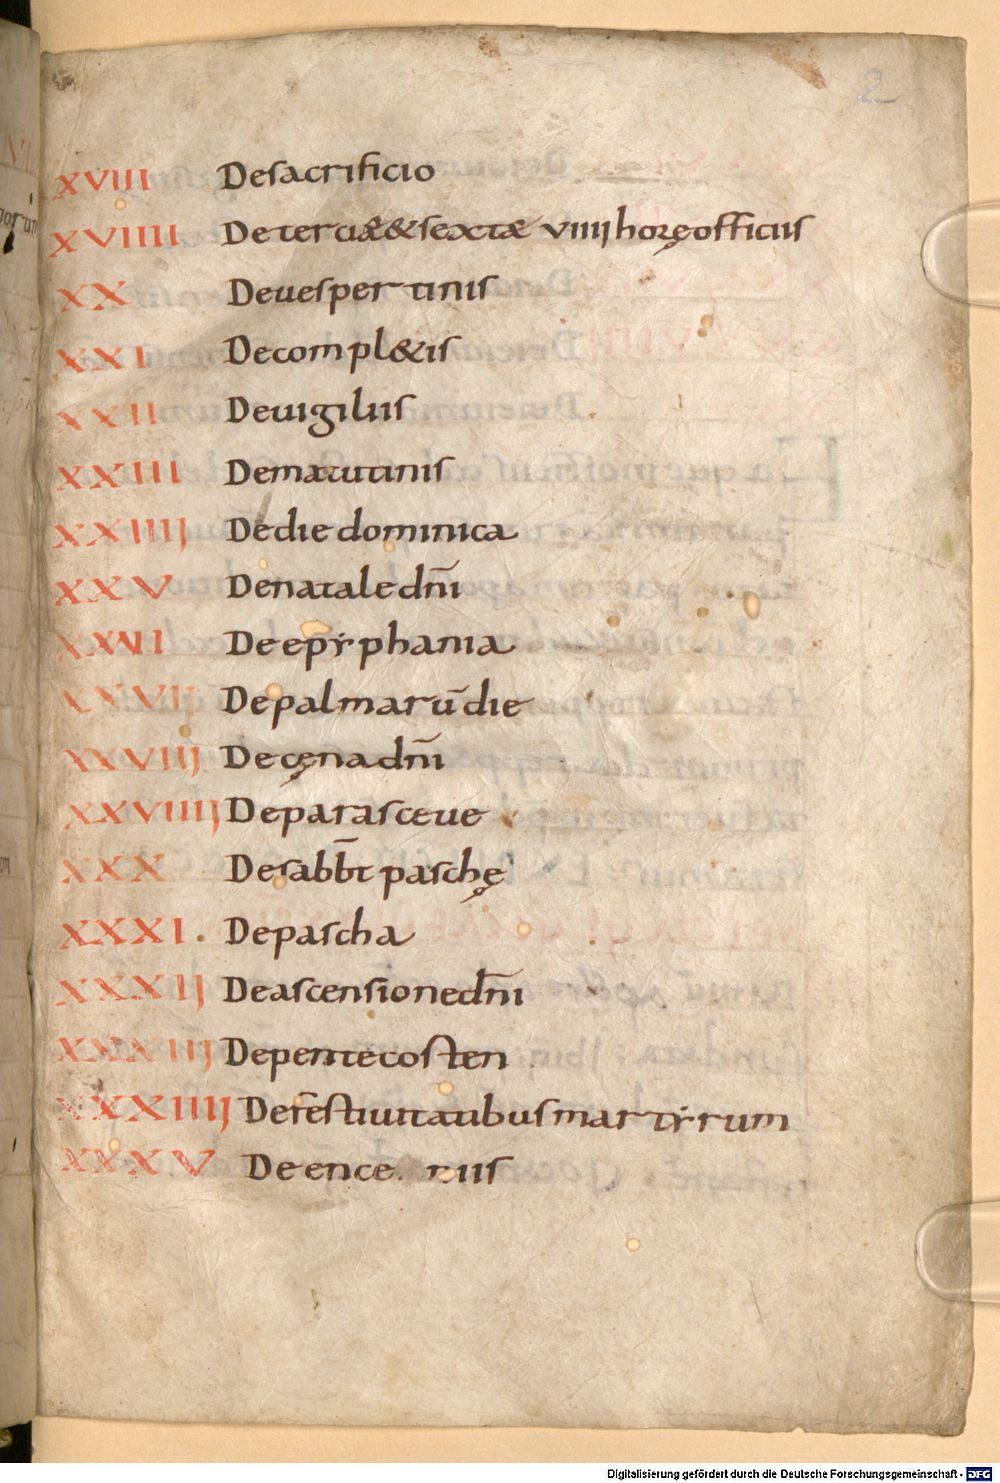 2
XVIII De sacrificio
XVIIII De terciæ & sextæ VIIIJ horę officiis
XX De uespertinis
XXI De compl&is
XXII De uigiliis
XXIII De matutinis
XXIIIJ De die dominica
XXV De natale dñi
XXVI De epẏphania
XXVIJ De palmarū die
XXVIIJ De cęna dñi
XXVIIIJ De parasceue
XXX De sabb̄t paschę
XXXI. De pascha
XXXIJ De ascensione dñi
XXXIIJ De pentecosten
XXXIIIJ De festiuitatibus martẏrum
XXXV De ence. niis
Digitalisierung gefördert durch die Deutsche Forschungsgemeinschaft - DFG